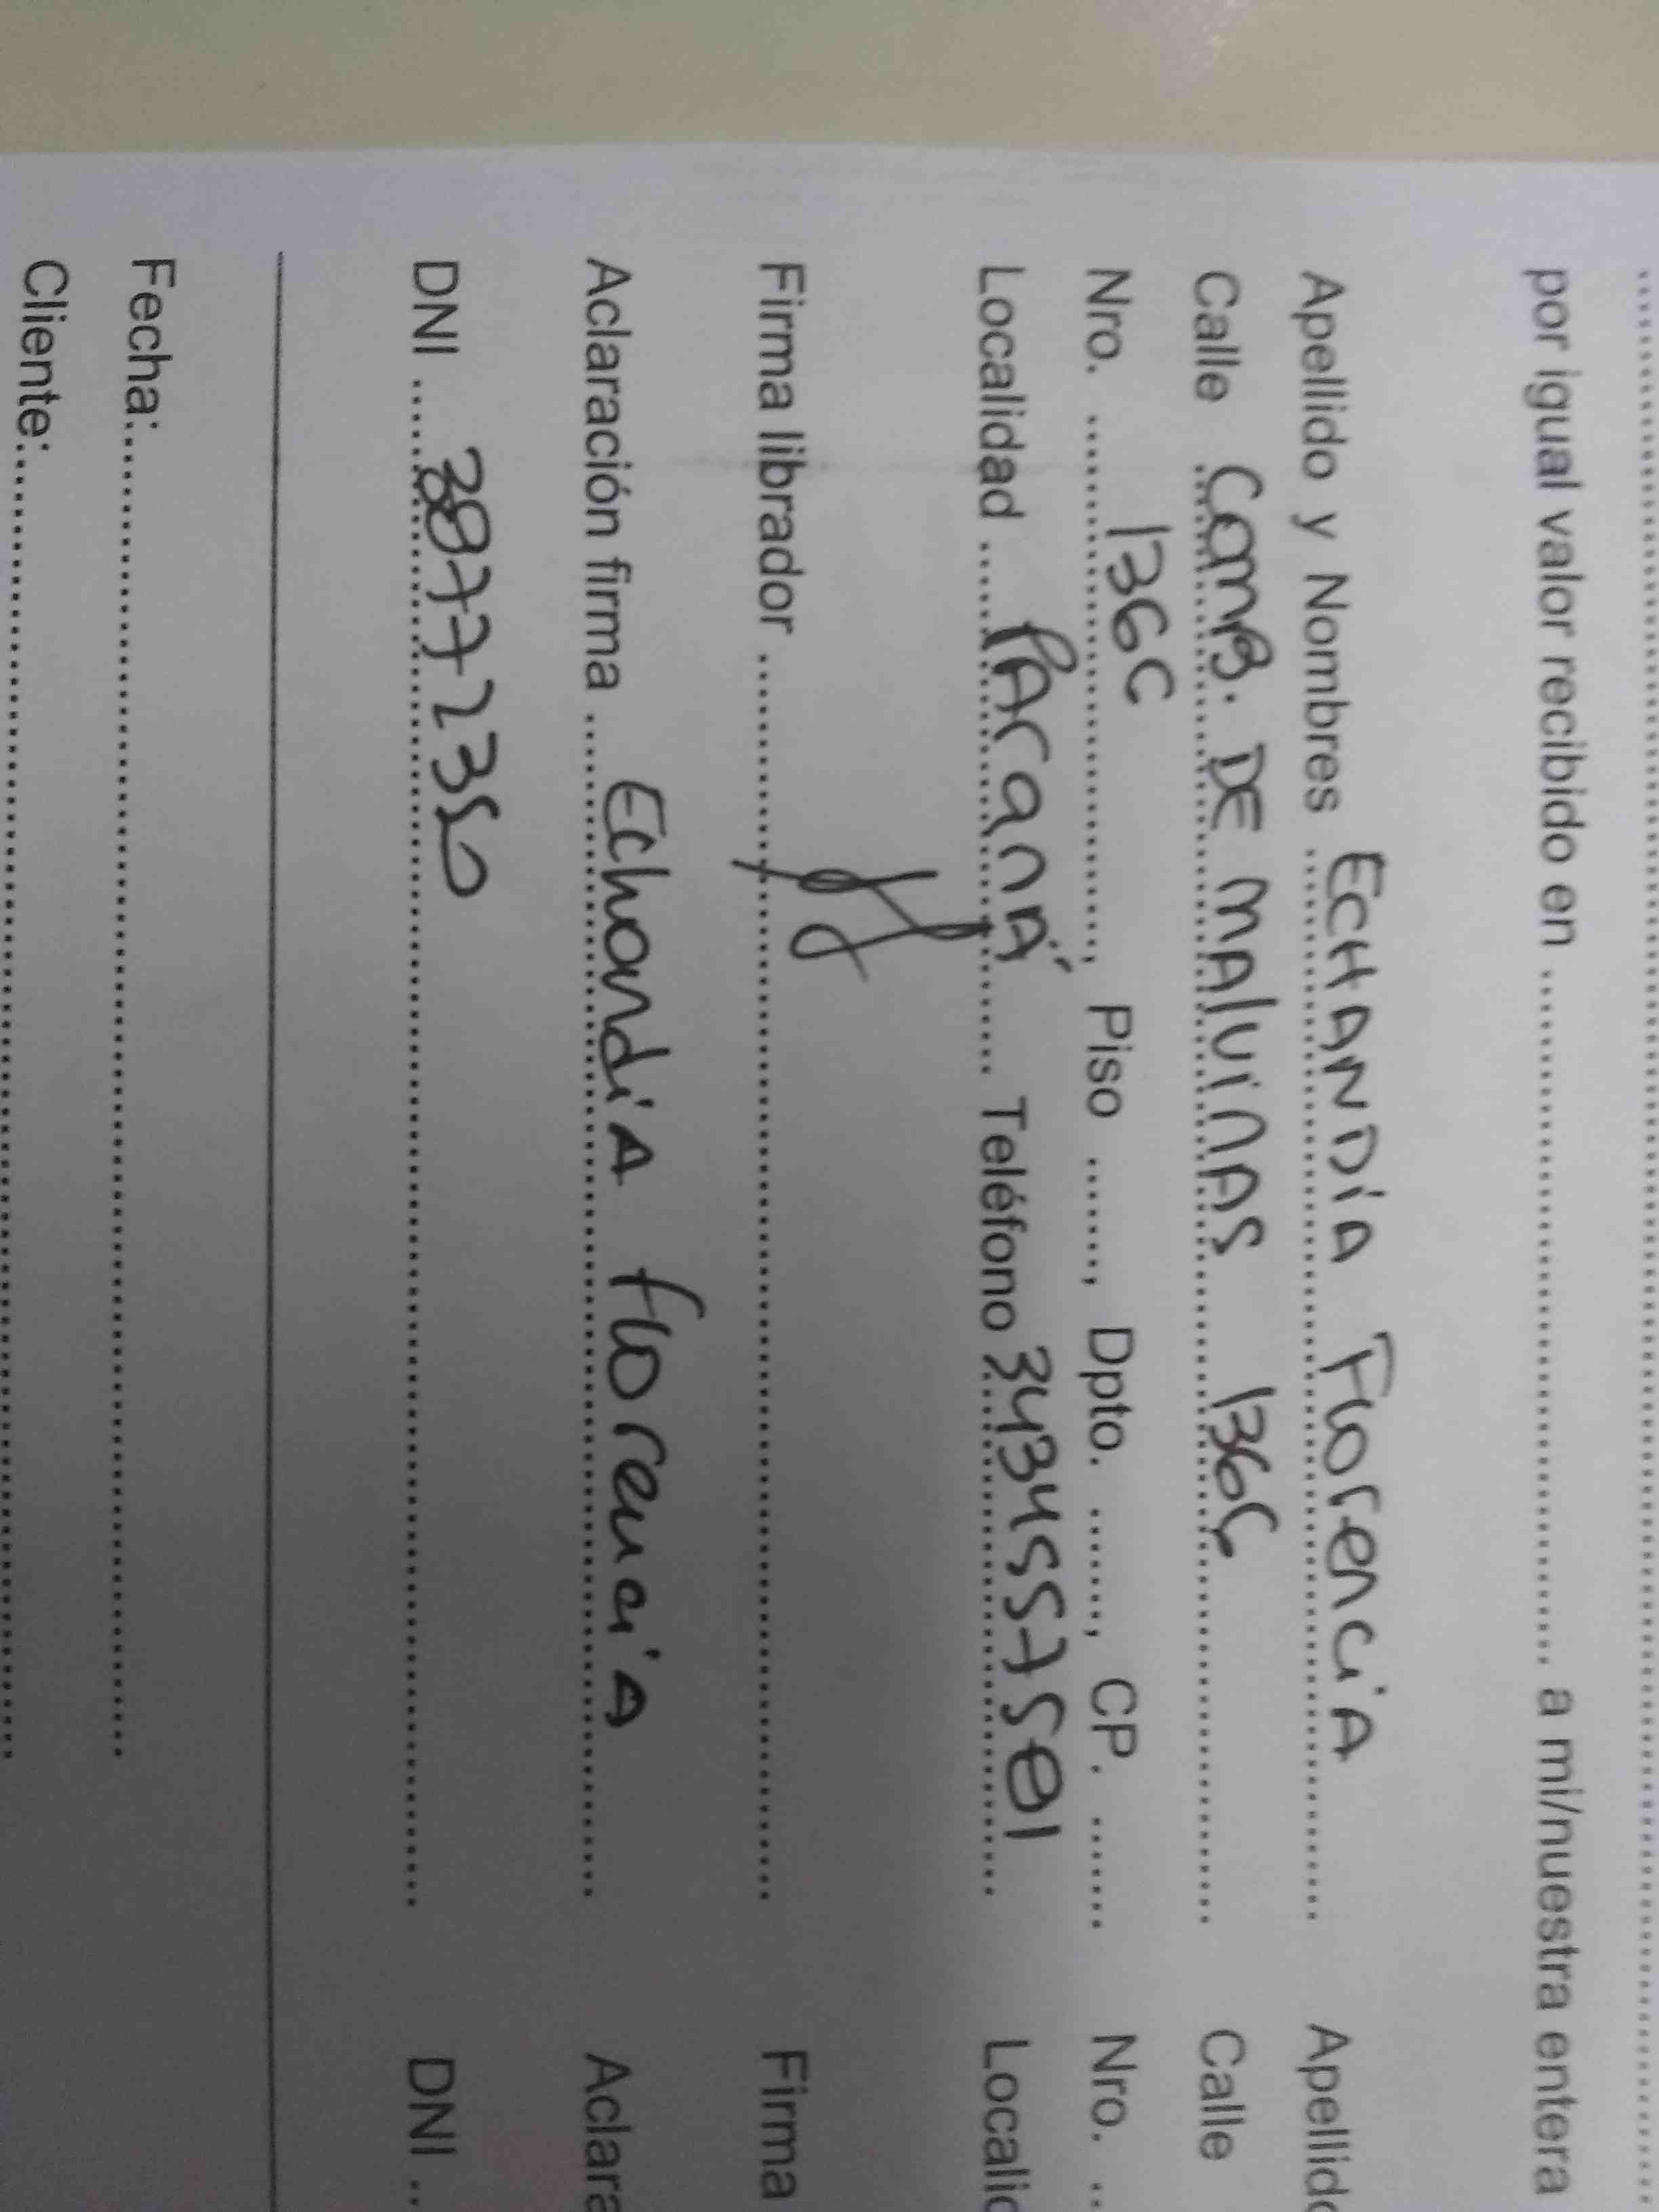 por igual valor recibido en ...................., a mi/nuestra entera
Apellido y Nombres ECHANDÍA Florencia Apellido
Calle COMB. DE MALVINAS 136C Calle
Nro. 136C, Piso ......., Dpto. ......., CP. ....... Nro.
Localidad PArANÁ Teléfono 3434557581 Localid
Firma librador Firma
Aclaración firma EchandíA FlorenciA Aclara
DNI DNI
Fecha:
Cliente: